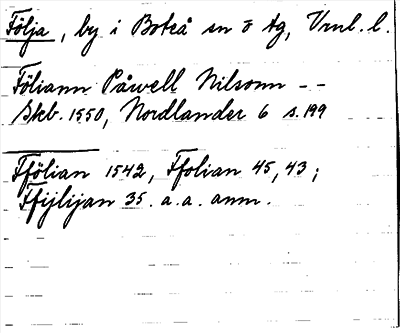 Följa, by i Boteå sn o tg, Vrnl. l.
Föliann Påwell Nilsonn - -
Skb. 1550, Nordlander 6 s. 199
Ffölian 1542, Ffolian 45, 43;
Ffijlijan 35. a. a. anm.